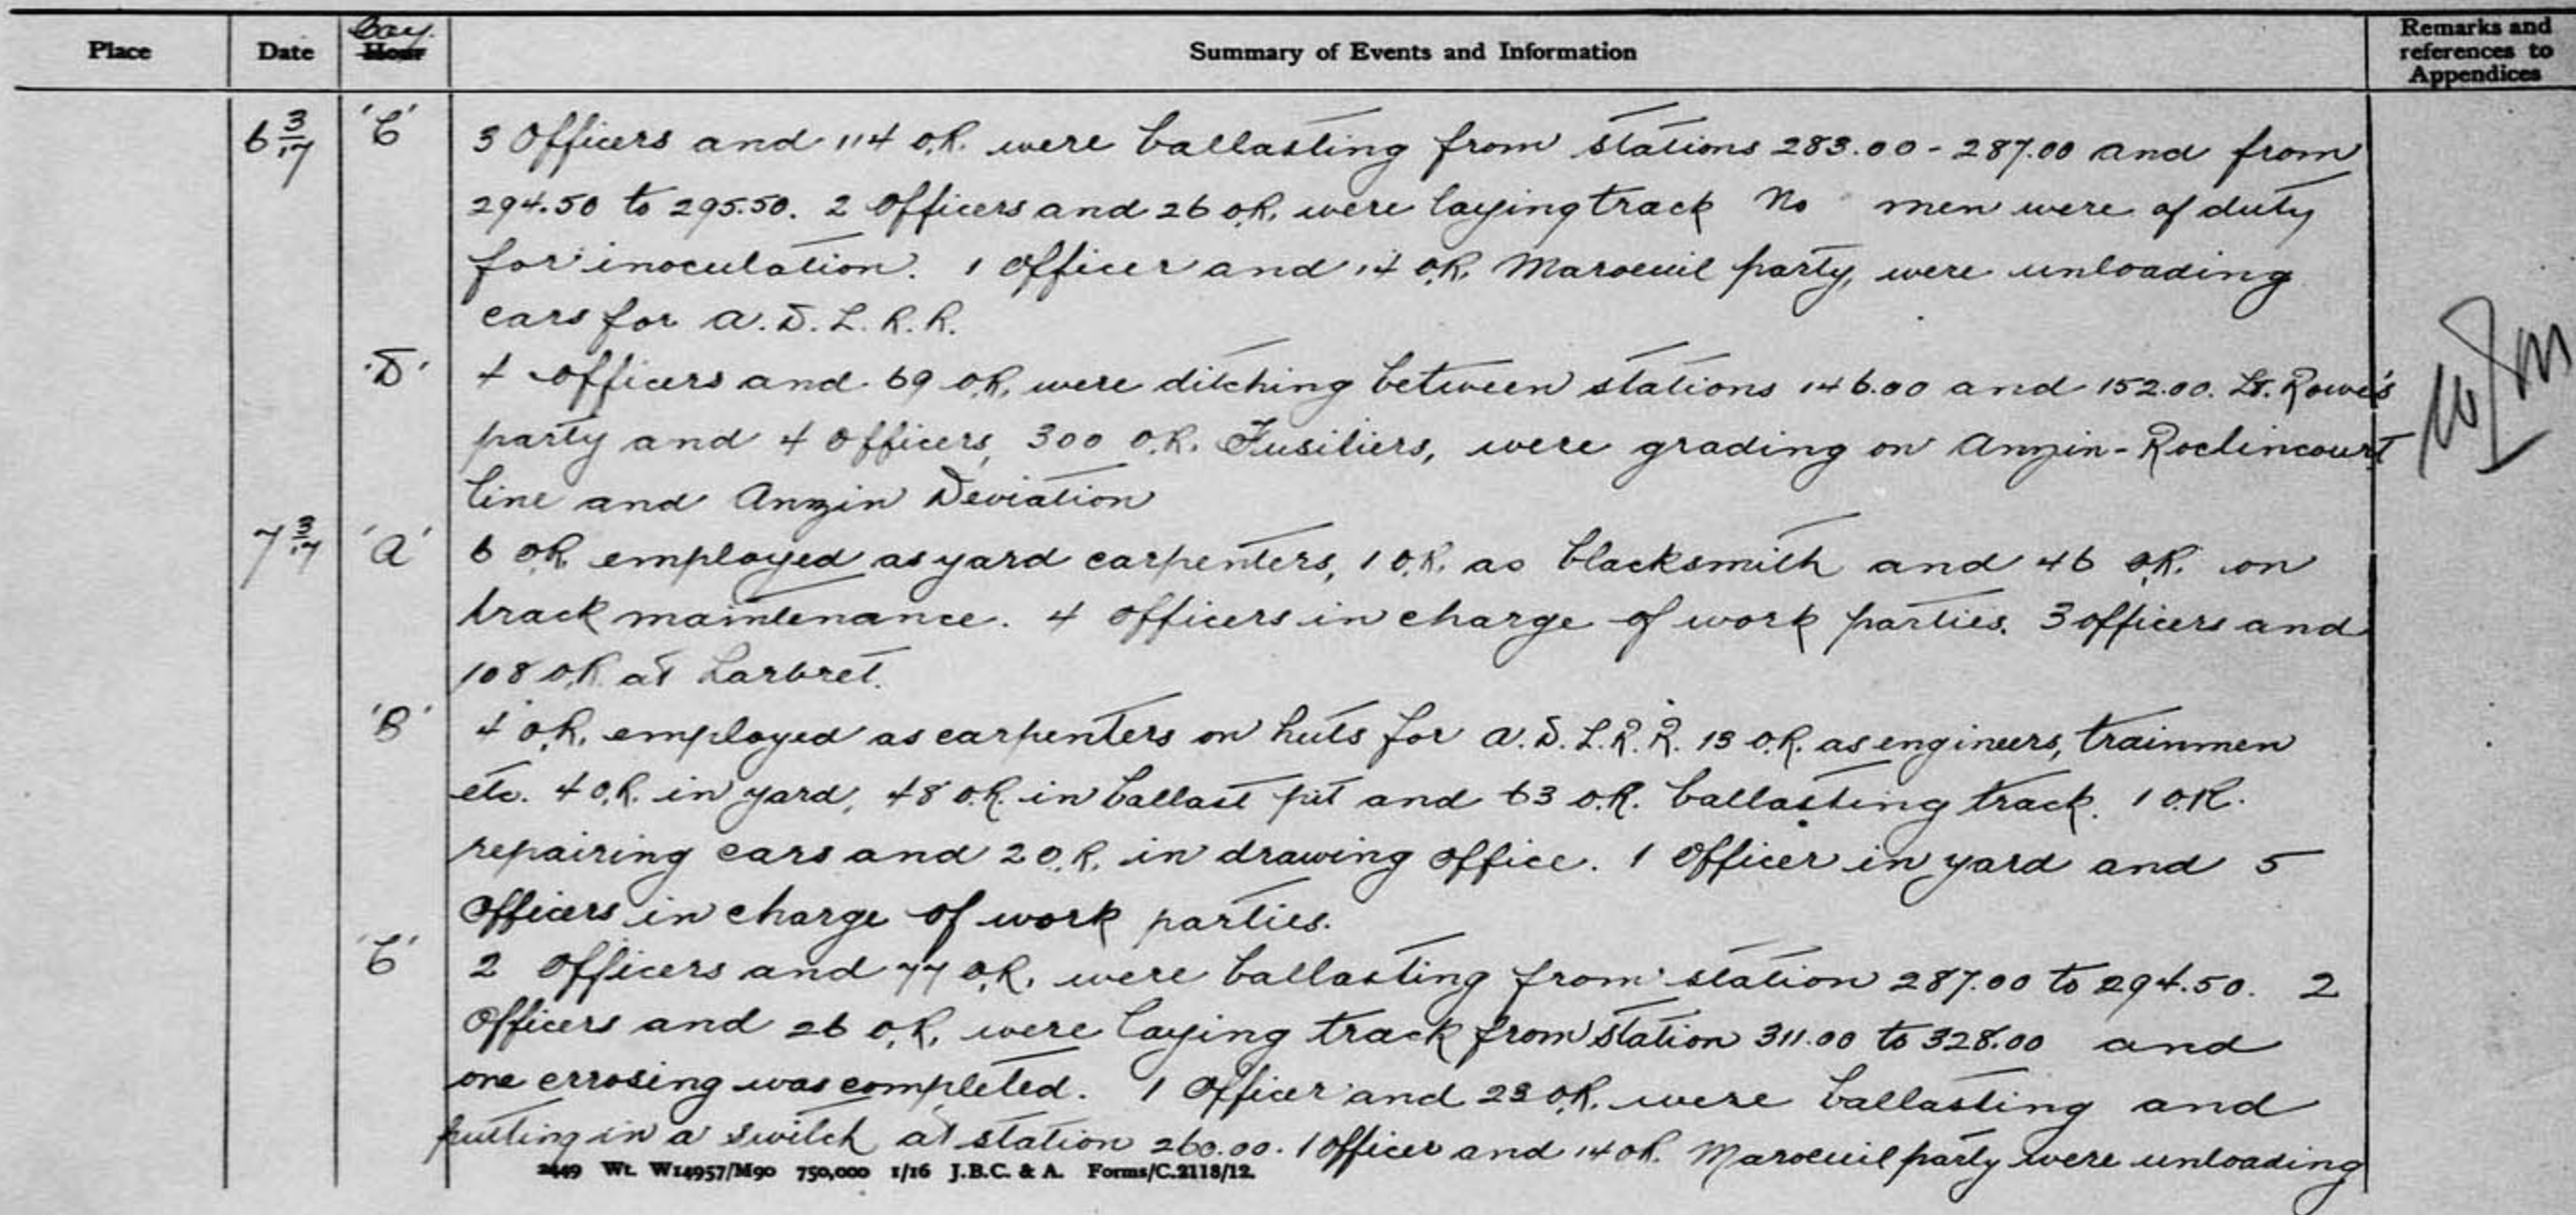 Place Date Coy. Hour Summary of Events and Information Remarks and references to Appendices
6 3/17 'C' 3 Officers and 114 O.R. were ballasting from stations 283.00 - 287.00 and from
294.50 to 295.50. 2 Officers and 26 O.R. were laying track No men were of duty
for inoculation. 1 Officer and 14 O.R. Maroeuil party, were unloading
cars for A.D.L.R.R.
'D' 4 Officers and 69 O.R. were ditching between stations 146.00 and 152.00. Lt. Rowe's
party and 4 Officers, 300 O.R. Fusiliers, were grading on Anzin-Roclincourt
line and Anzin Deviation
7 3/17 'A' 6 O.R. employed as yard carpenters, 1 O.R. as blacksmith and 46 O.R. on
track maintenance. 4 Officers in charge of work parties. 3 officers and
108 O.R. at Larbret.
'B' 4 O.R. employed as carpenters on huts for A.D.L.R.R. 13 O.R. as engineers, trainmen
etc. 4 O.R. in yard, 48 O.R. in ballast pit and 63 O.R. ballasting track. 1 O.R.
repairing cars and 2 O.R. in drawing office. 1 Officer in yard and 5
Officers in charge of work parties.
'C' 2 Officers and 77 O.R. were ballasting from station 287.00 to 294.50. 2
Officers and 26 O.R. were laying track from station 311.00 to 328.00 and
one crrosing was completed. 1 Officer and 23 O.R. were ballasting and
putting in a switch at station 260.00. 1 Officer and 14 O.R. Maroeuil party were unloading
2449 Wt. W14957/M90 750,000 1/16 J.B.C. & A. Forms/C.2118/12.